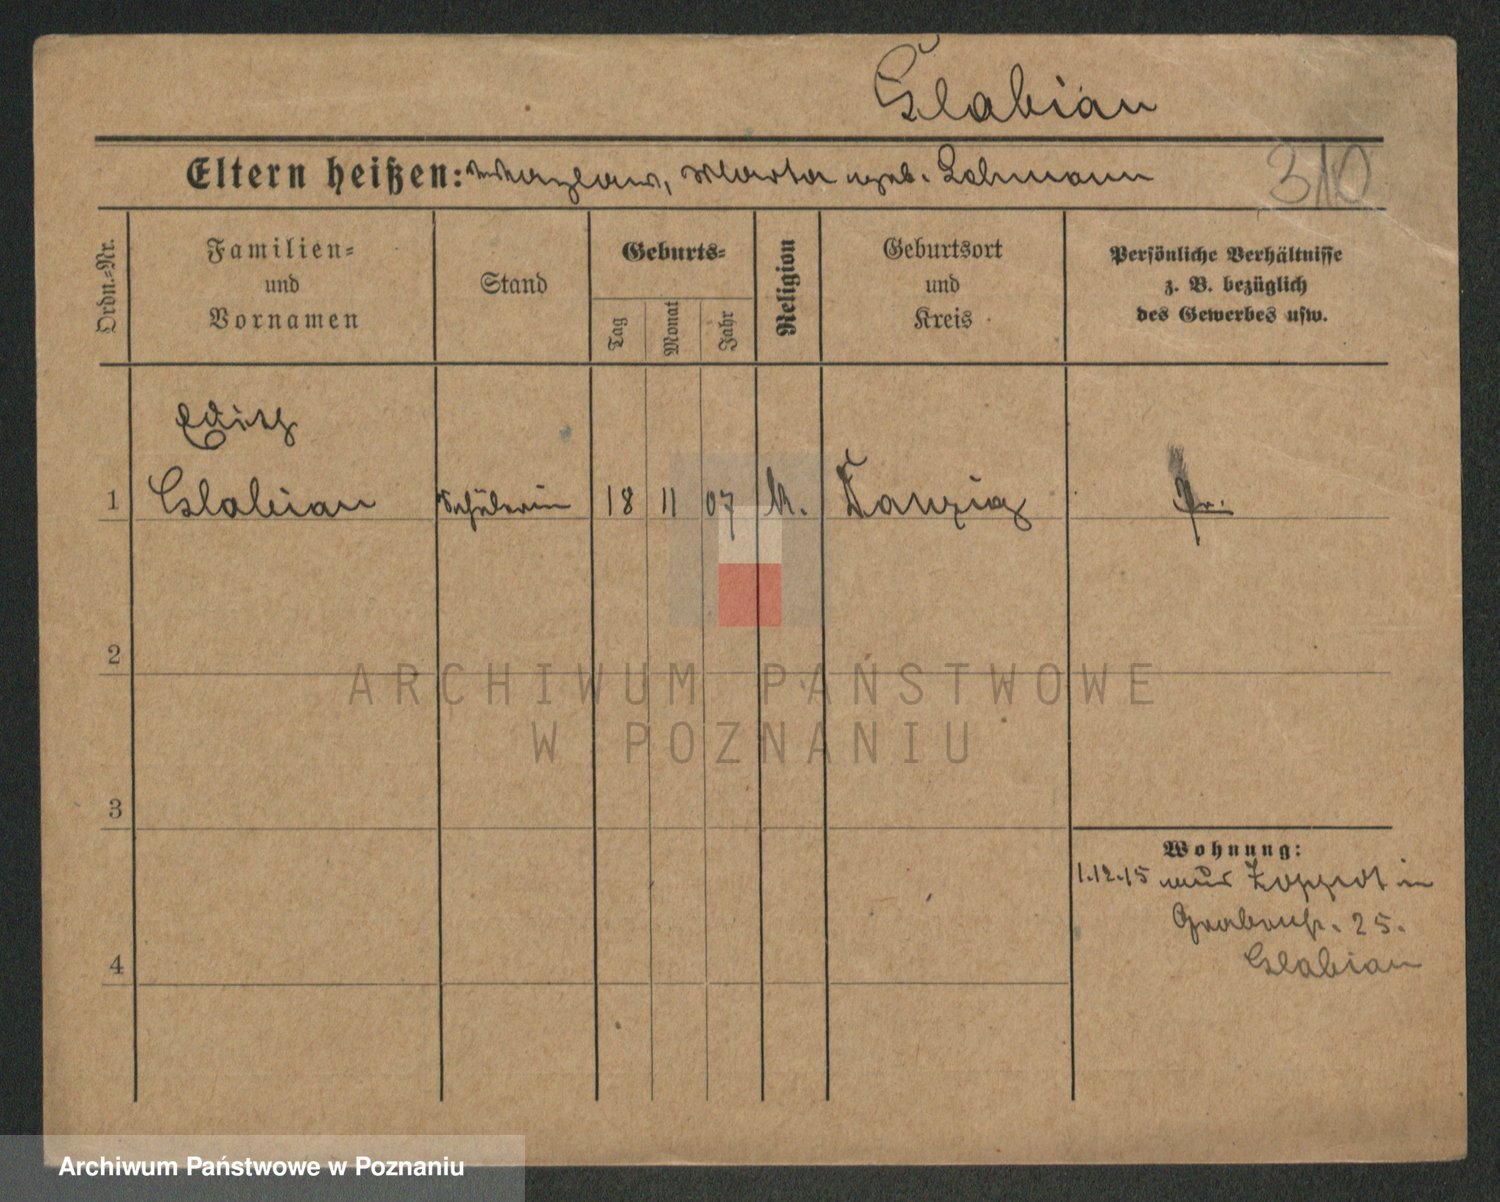 Glabian
Eltern heißen: Wazlaw, Marta geb. Lehmann
310
Ordn.-Nr.
Familien-
und
Vornamen
Stand
Geburts-
Tag
Monat
Jahr
Religion
Geburtsort
und
Kreis
Persönliche Verhältnisse
z. B. bezüglich
des Gewerbes usw.
Edith
1 Glabian Schülerin 18 11 07 K. Danzig Pr.
2
3
4
Wohnung:
1.12.15 aus Zoppot in
Grabenstr. 25.
Glabian
ARCHIWUM PAŃSTWOWE
W POZNANIU
Archiwum Państwowe w Poznaniu